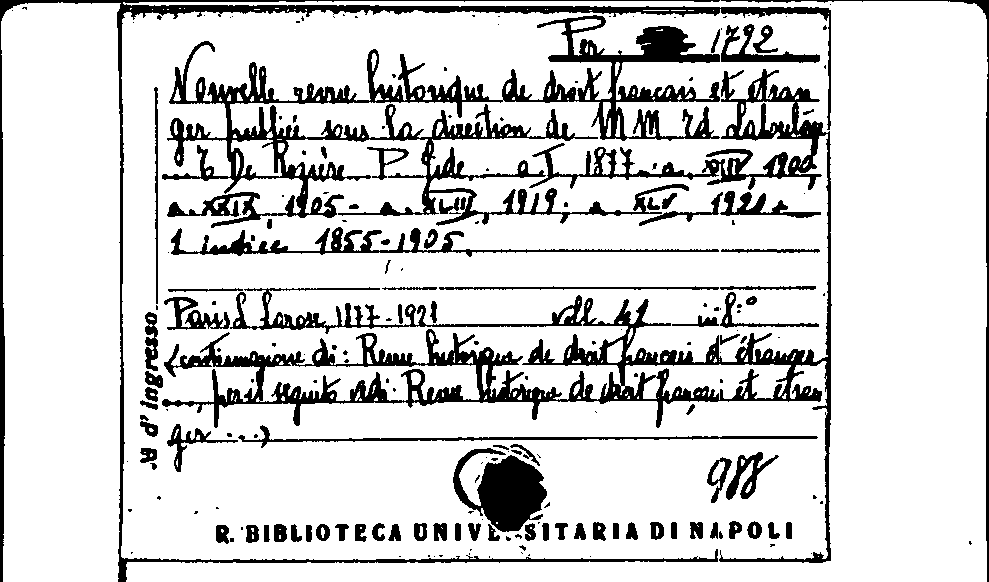 Per. 1792.
Nouvelle revue historique de droit français et étran
ger publiée sous la direction de MM Ed Laboulaye
... E De Rozière P. Gide... a. I, 1877 - a. XXIV, 1900,
a. XXIX, 1905 - a. XLIII, 1919; a. XLV, 1921 -
1 indice 1855-1905.
Paris L Larose, 1877-1921 voll. 41 in 8:°
(continuazione di: Revue historique de droit français et étranger
..., per il seguito vedi: Revue historique de droit français et étran
ger ...)
988
R. BIBLIOTECA UNIVERSITARIA DI NAPOLI
N d'ingresso